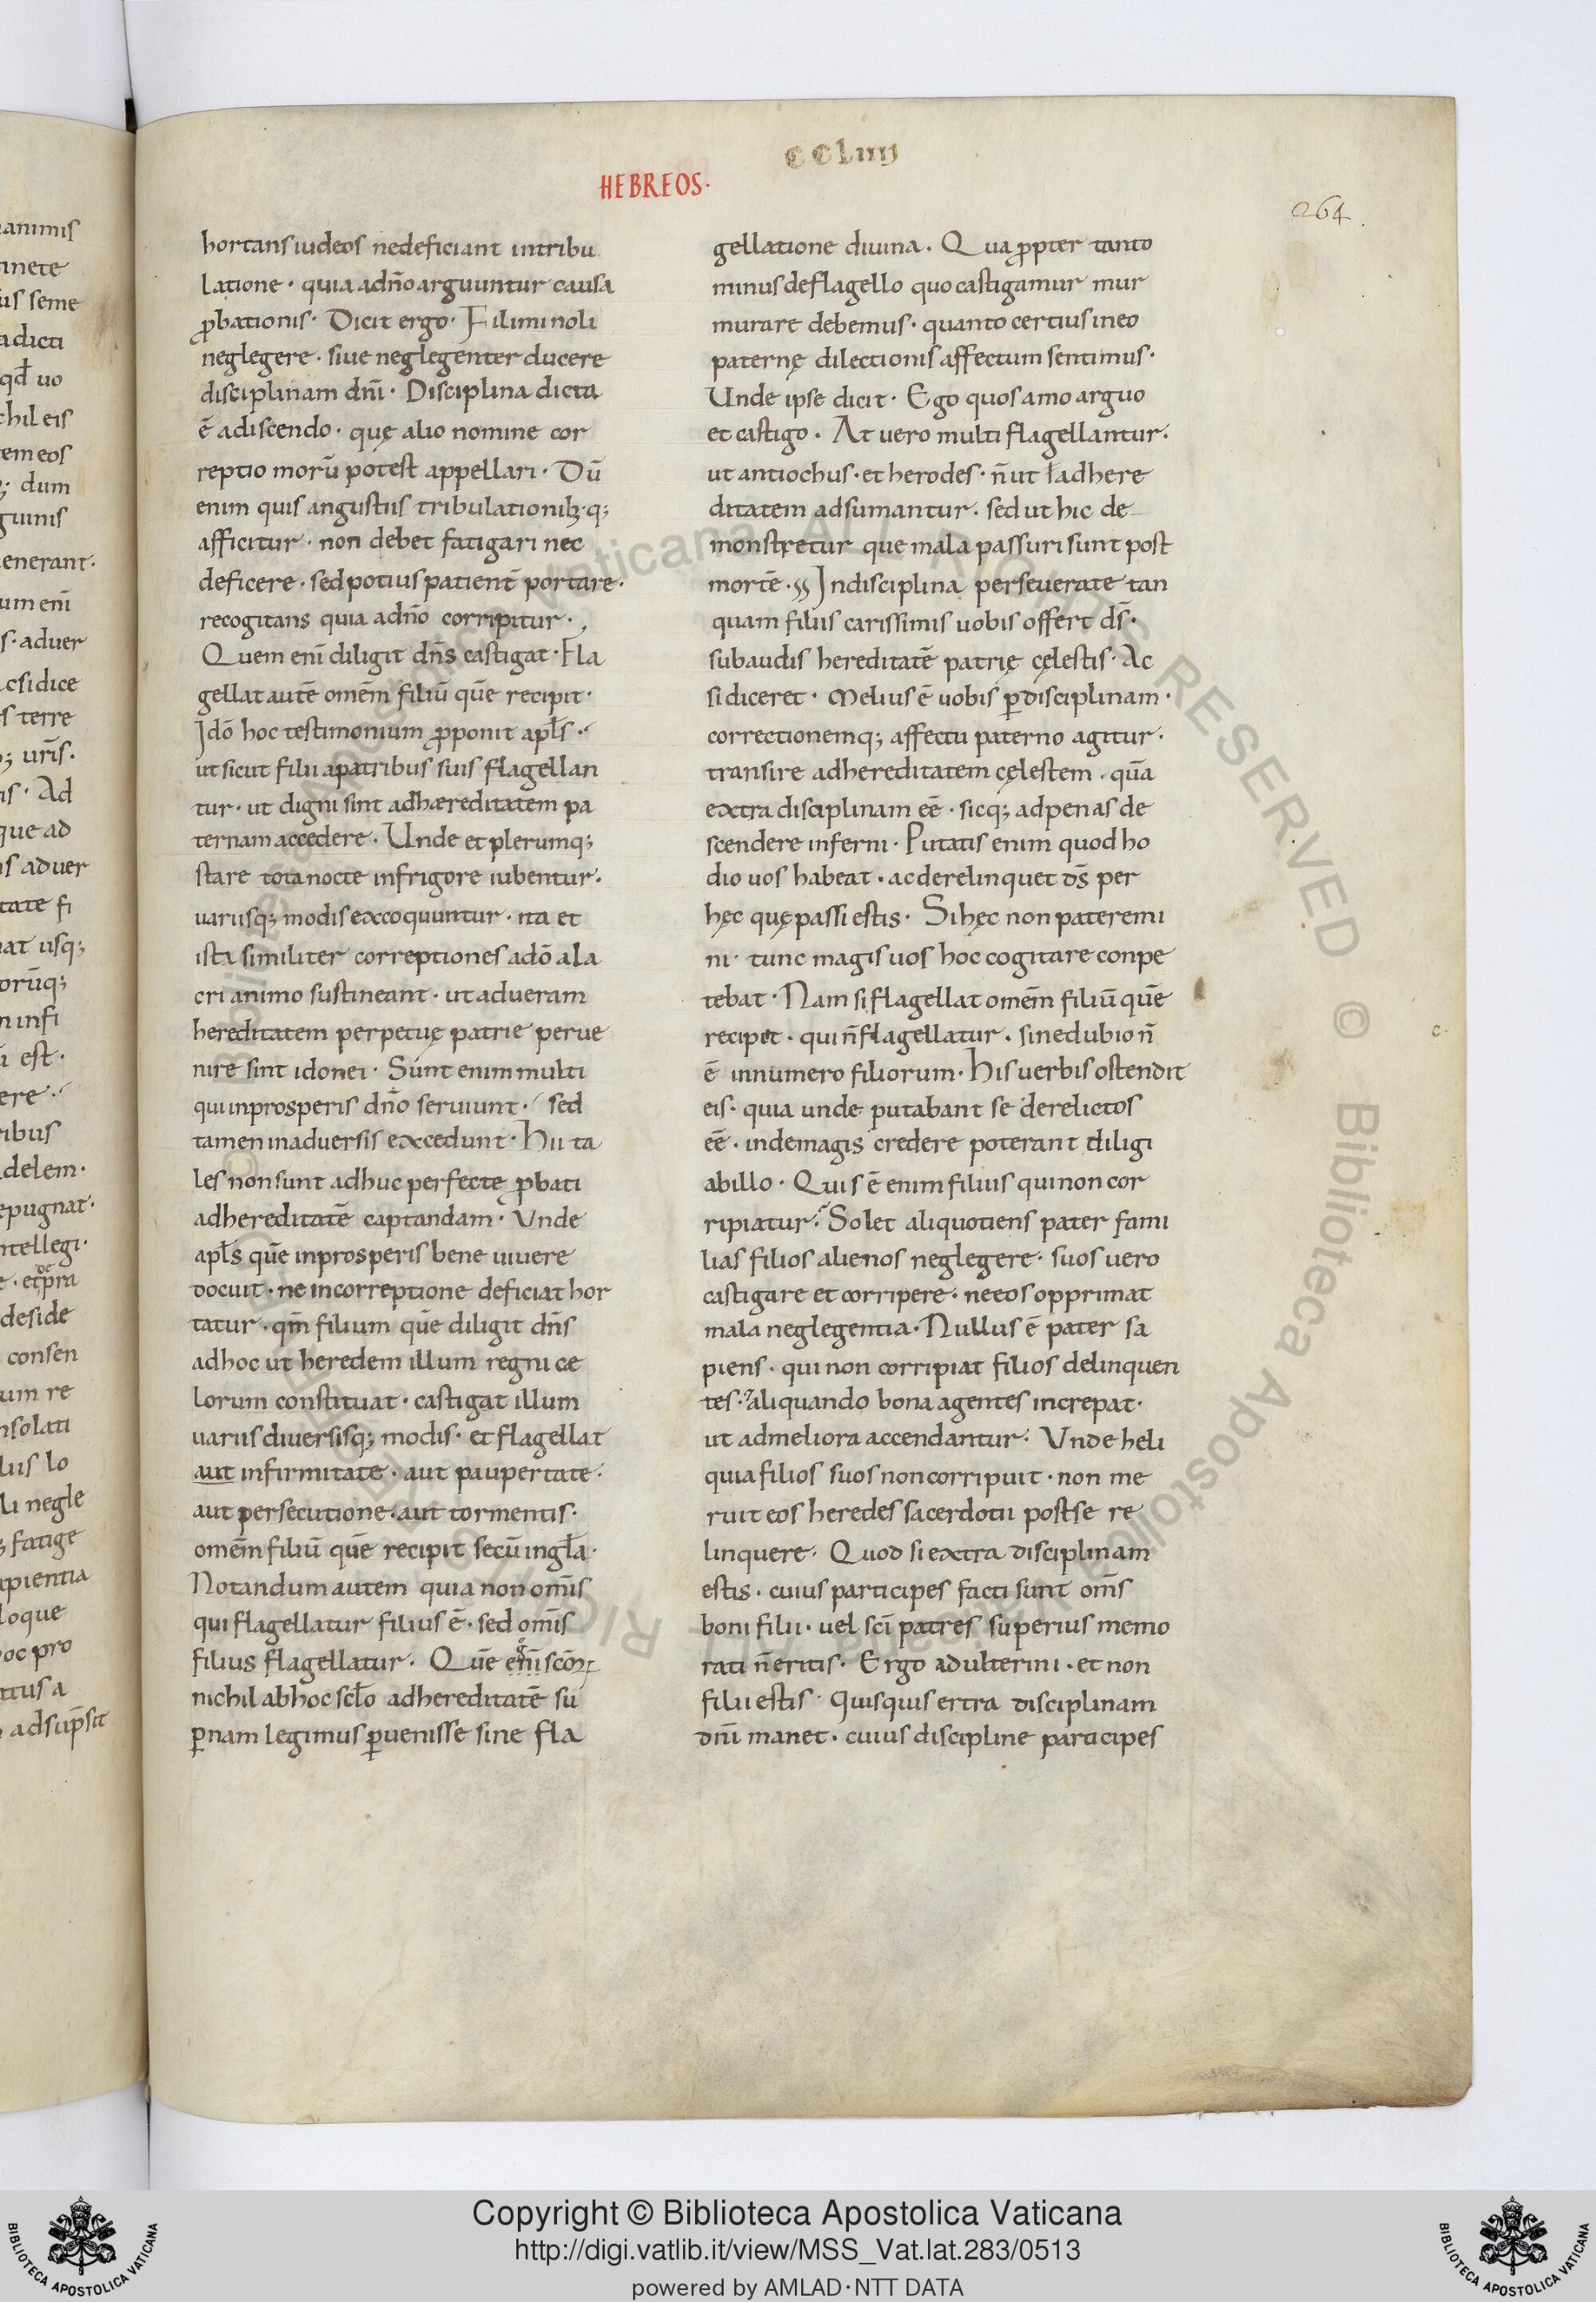 cclıııı
HEBREOS·
264
hortans iudeos ne deficiant in tribu
latione · quia a dño arguuntur causa
ꝓbationis · Dicit ergo · Fili mi noli
neglegere · siue neglegenter ducere
disciplinam dñi · Disciplina dicta
ē a discendo · quę alio nomine cor
reptio morū potest appellari · Dū
enim quis angustiis tribulationibꝫ·q;
afficitur · non debet fatigari nec
deficere · sed potius patient̄ portare ·
recogitans quia a dño corripitur ·
Quem eni diligit dñs castigat · Fla
gellat autē omēm filiū quē recipit ·
Idō hoc testimonium ꝓponit apłs ·
ut sicut filii a patribus suis flagellan
tur · ut digni sint ad hæreditatem pa
ternam accedere · Unde et plerumq;
stare tota nocte in frigore iubentur ·
uariisq; modis excoquuntur · ita et
isti similiter correptiones a dō ala
cri animo sustineant · ut ad ueram
hereditatem perpetuę patrie perue
nire sint idonei · Sunt enim multi
qui in prosperis dño seruiunt · sed
tamen in aduersis excedunt · Hii ta
les non sunt adhuc perfecte ꝓbati
ad hereditatē captandam · Vnde
apłs quē in prosperis bene uiuere
docuit · ne in correptione deficiat hor
tatur · qm̄ filium quē diligit dñs
ad hoc ut heredem illum regni ce
lorum constituat · castigat illum
uariis diuersisq; modis · et flagellat
aut infirmitate · aut paupertate ·
aut persecutione · aut tormentis ·
omēm filiū quē recipit secū in gła ·
Notandum autem quia non om̄is
qui flagellatur filius ē · sed om̄is
filius flagellatur · Quē eni scōꝝ
nichil ab hoc scło ad hereditatē su
ꝑnam legimus ꝑuenisse sine fla
gellatione diuina · Qua ꝓpter tanto
minus de flagello quo castigamur mur
murare debemus · quanto certius in eo
paternę dilectionis affectum sentimus ·
Unde ipse dicit · Ego quos amo arguo
et castigo · At uero multi flagellantur ·
ut antiochus · et herodes · ñ ut ad here
ditatem adsumantur · sed ut hic de
monstretur que mala passuri sunt post
mortē · In disciplina perseuerate tan
quam filiis carissimis uobis offert dš ·
subaudis hereditatē patrię cęlestis · Ac
si diceret · Melius ē uobis ꝑ disciplinam ·
correctionemq; affectu paterno agitur ·
transire ad hereditatem cęlestem · quā
extra disciplinam eē · sicq; ad penas de
scendere inferni · Putatis enim quod ho
dio uos habeat · ac derelinquet dš per
hęc quę passi estis · Si hęc non pateremi
ni · tunc magis uos hoc cogitare conpe
tebat · Nam si flagellat omēm filiū quē
recipit · qui ñ flagellatur · sine dubio ñ
ē in numero filiorum · His uerbis ostendit
eis · quia unde putabant se derelictos
eē · inde magis credere poterant diligi
ab illo · Quis ē enim filius qui non cor
ripiatur · Solet aliquotiens pater fami
lias filios alienos neglegere · suos uero
castigare et corripere · ne eos opprimat
mala neglegentia · Nullus ē pater sa
piens · qui non corripiat filios delinquen
tes · aliquando bona agentes increpat ·
ut ad meliora accendantur · Vnde heli
quia filios suos non corripuit · non me
ruit eos heredes sacerdotii post se re
linquere · Quod si extra disciplinam
estis · cuius participes facti sunt om̄s
boni filii · uel sci patres superius memo
rati ñ eritis · Ergo adulterini · et non
filii estis · Quisquis extra disciplinam
dñi manet · cuius discipline participes
Copyright © Biblioteca Apostolica Vaticana
http://digi.vatlib.it/view/MSS_Vat.lat.283/0513
powered by AMLAD·NTT DATA